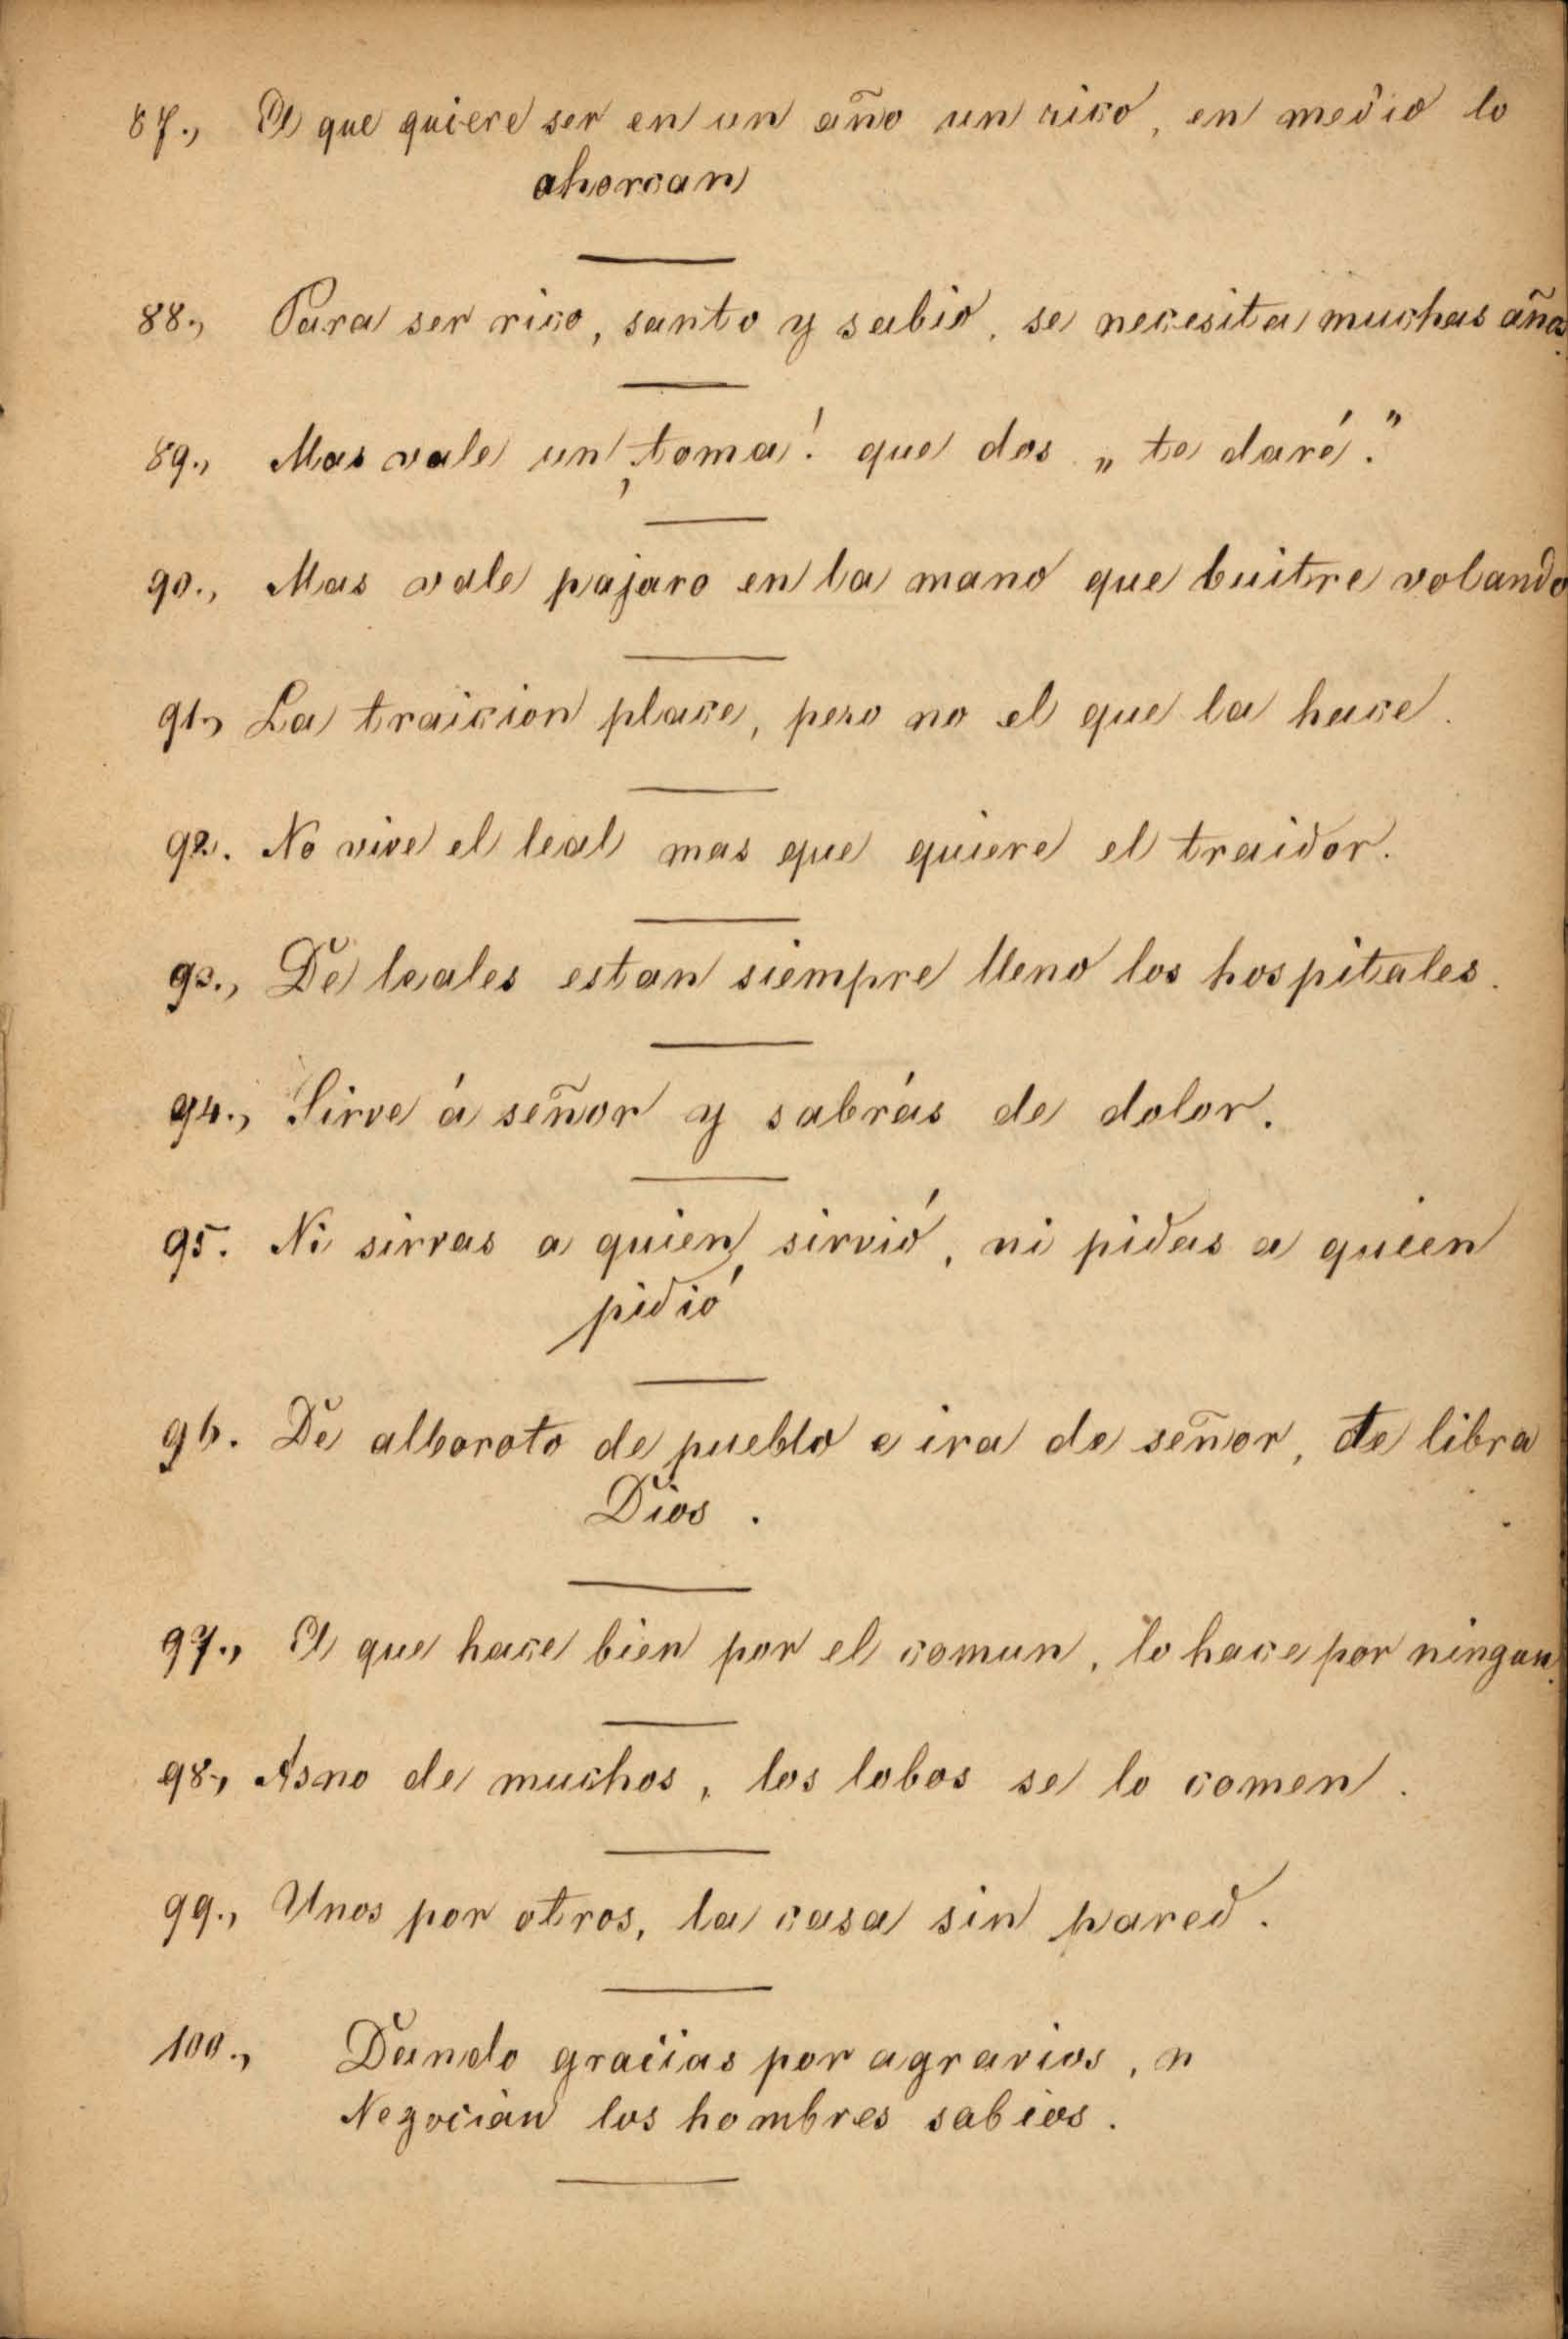 87., El que quiere ser en un año un rico, en medio lo
ahorcan
88., Para ser rico, santo y sabio, se necesita muchas años.
89., Mas vale un, toma! que dos „ te daré."
90., Mas vale pajaro en la mano que buitre volando
91., La traicion place, pero no el que la hace.
92. No vive el leal mas que quiere el traidor.
93., De leales estan siempre lleno los hospitales.
94., Sirve á señor y sabrás de dolor.
95. Ni sirvas a quien sirvió, ni pidas a quien
pidió
96. De alboroto de pueblo e ira de señor, te libra
Dios.
97., El que hace bien por el comun, lo hace por ningun.
98., Asno de muchos, los lobos se lo comen.
99., Unos por otros, la casa sin pared.
100., Dando gracias por agravios, n
Negocian los hombres sabios.